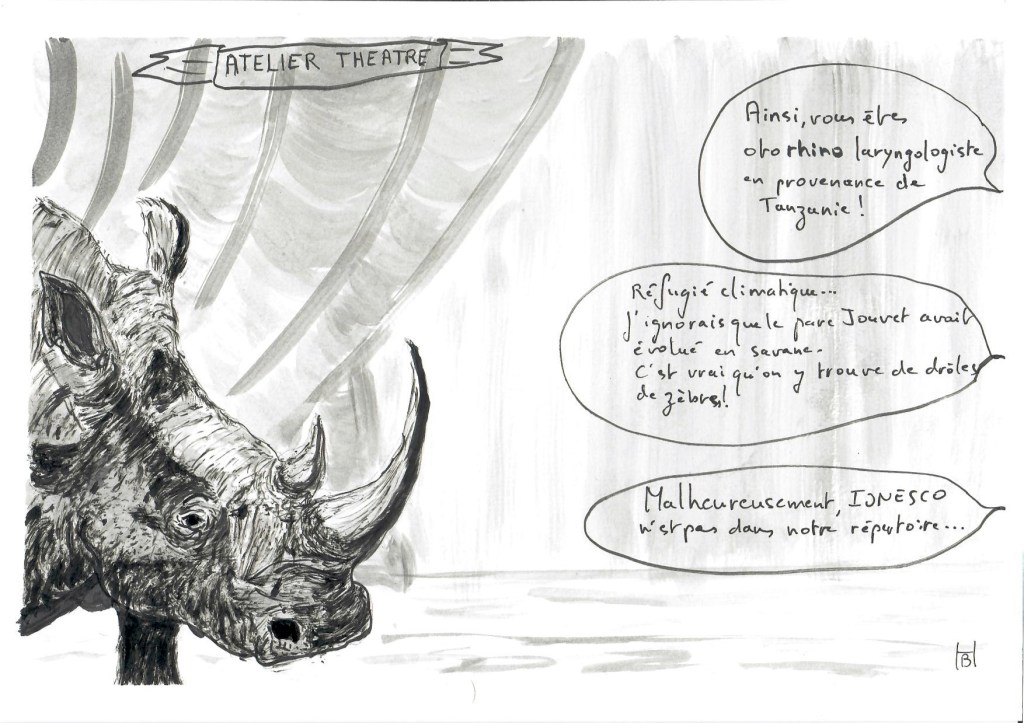 ATELIER THEATRE
Ainsi, vous êtes
oto rhino laryngologiste
en provenance de
Tanzanie !
Réfugié climatique...
J'ignorais que le parc Jouvet avait
évolué en savane.
C'est vrai qu'on y trouve de drôles
de zèbres !
Malheureusement, IONESCO
n'est pas dans notre répertoire...
HB